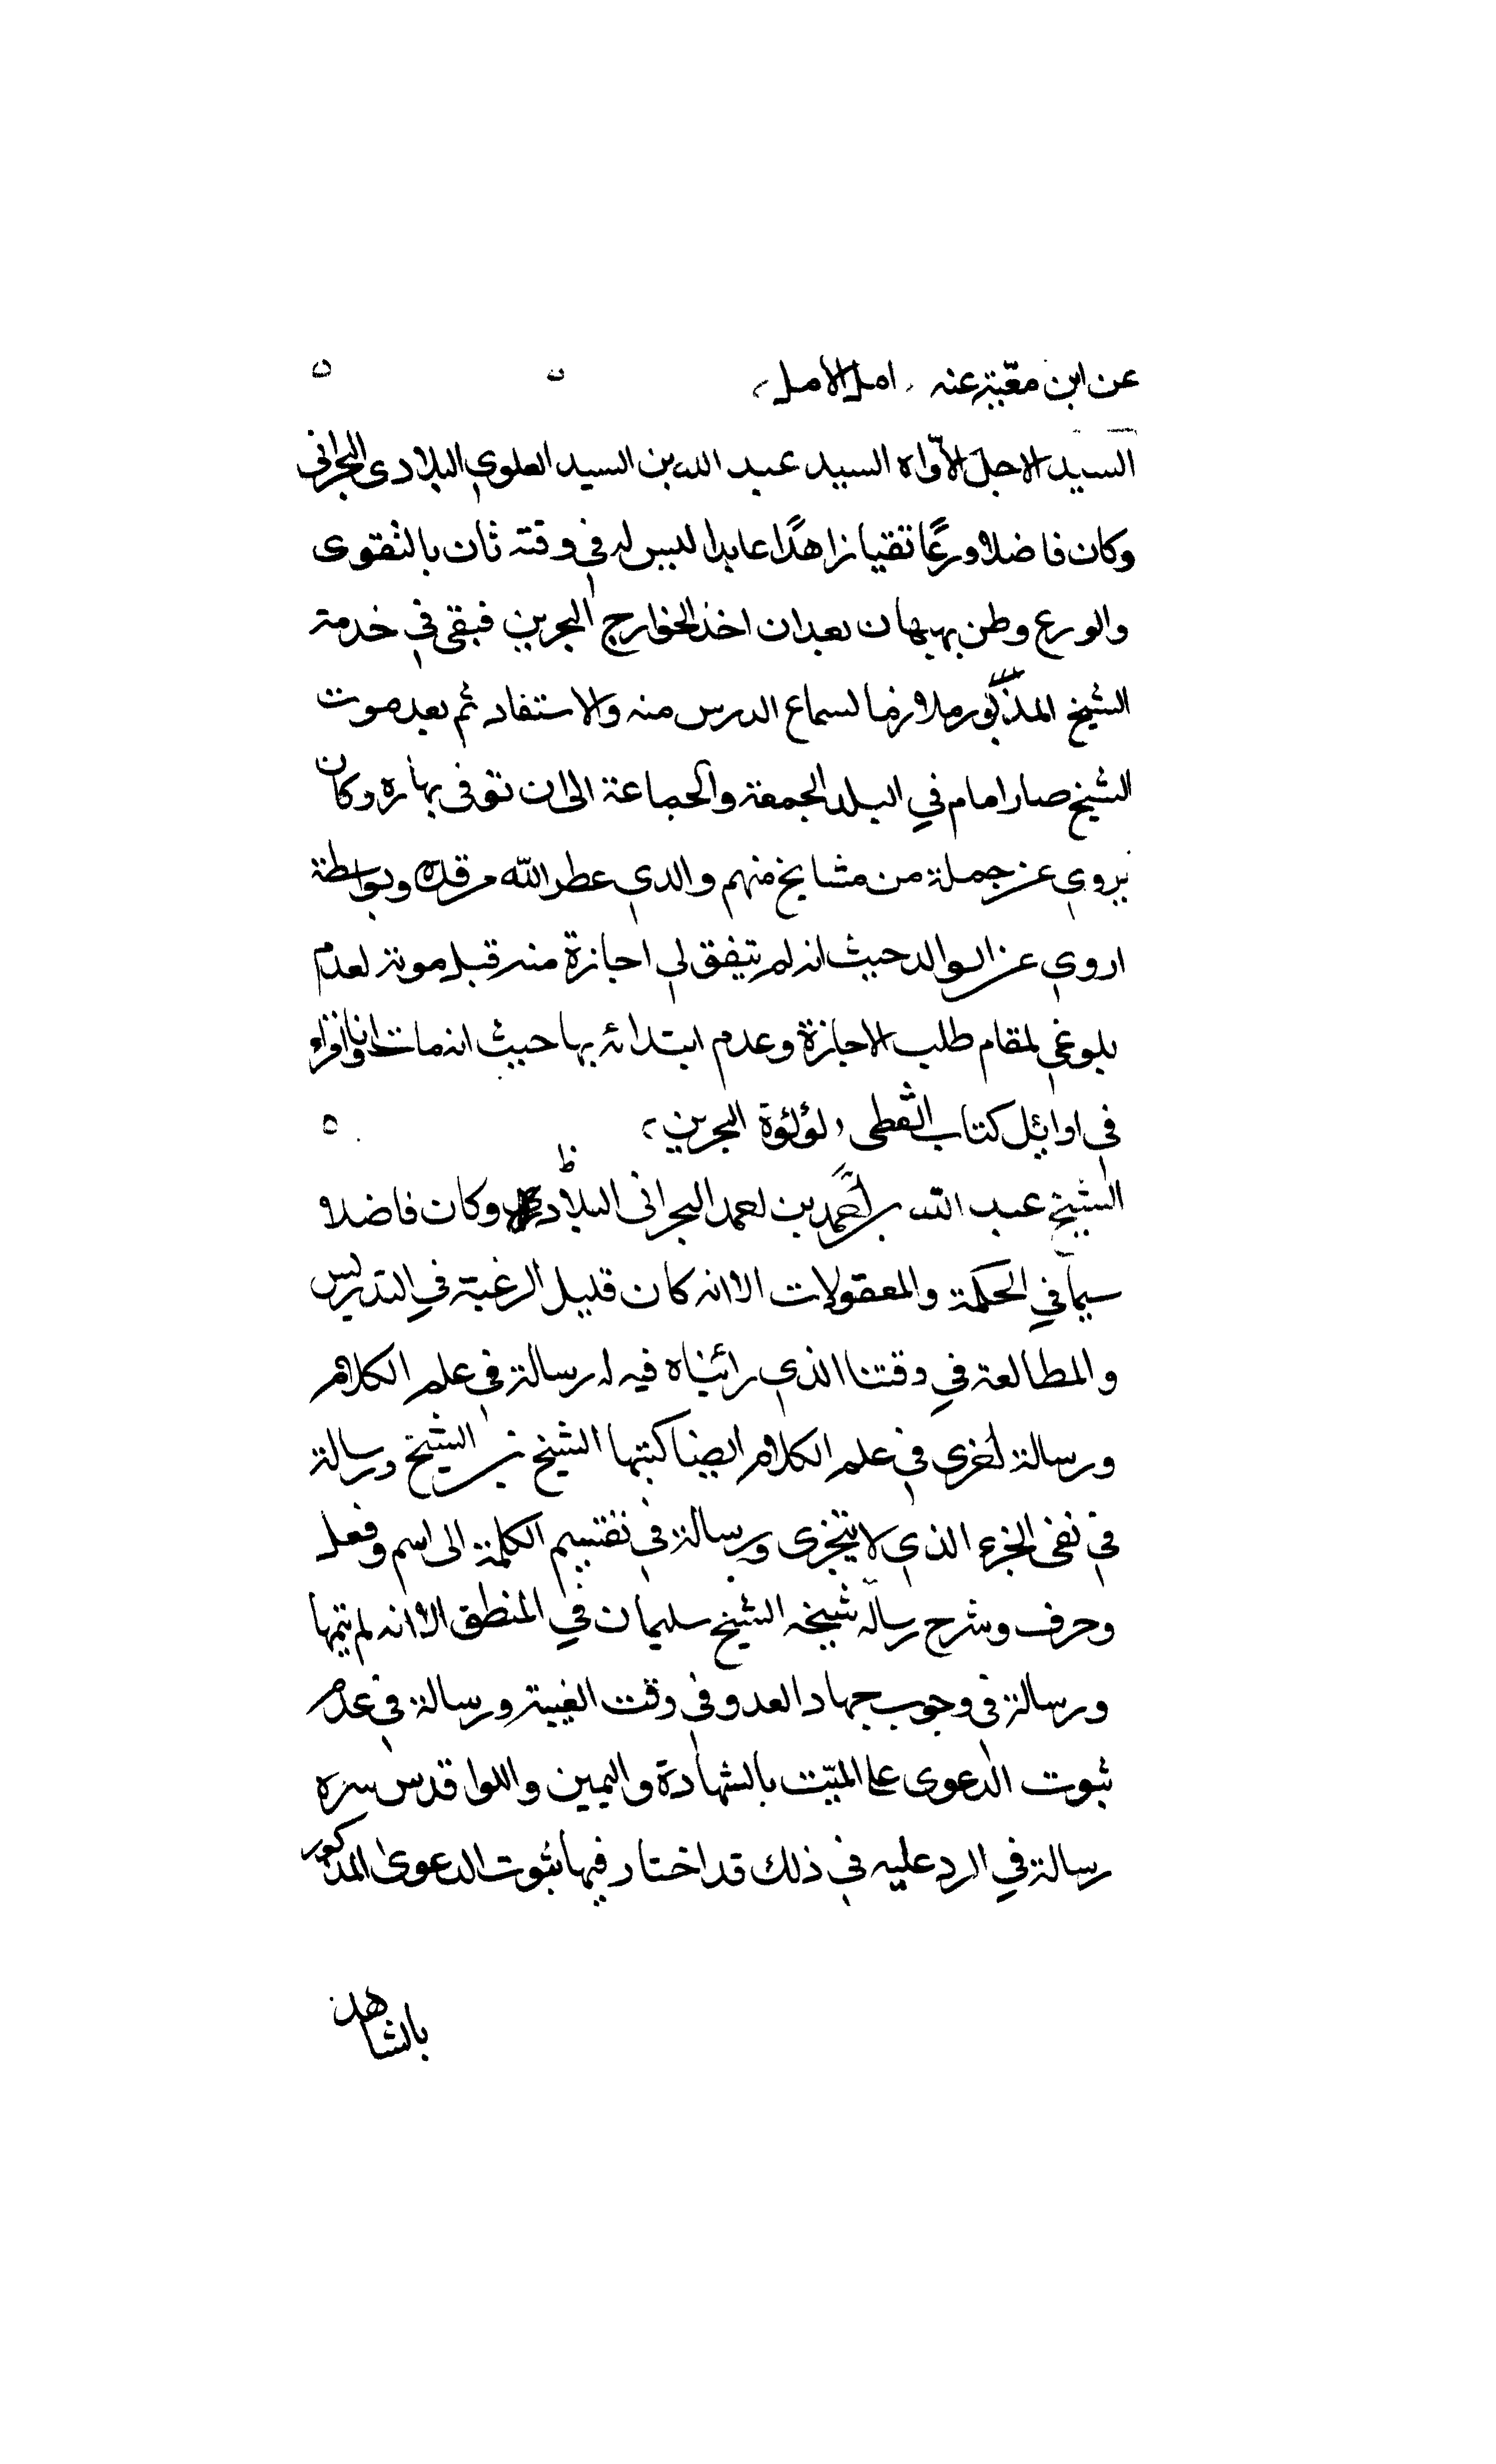 عن ابن معيّة عنه ، امل الامل ،
السيد الاجل الأواه السيد عبد الله بن السيد العلوى البلادى البحرانى
وكان فاضلا ورعًا تقيا زاهدًا عابدا ليس له فى وقته ثان بالتقوى
والورع وطن بهبهان بعد ان اخذ الخوارج البحرين فبقى فى خدمة
الشيخ المذكور ملازما لسماع الدرس منه والاستفاد ثم بعد موت
الشيخ صار امام في البلد الجمعة والجماعة الى ان توفى بها ره وكان
يروي عن جملة من مشايخ منهم والدي عطر الله مرقده وبواسطة
اروي عن الوالد حيث انه لم يتفق لي اجازة منه قبل موته لعدم
بلوغى لمقام طلب الاجازة وعدم ابتدائه بها حيث انه مات وانا اقراء
في اوائل كتاب القطى ، لؤلؤة البحرين ،
الشيخ عبد الله بن احمد البحرانى البلادى وكان فاضلا
سيما في الحكمة والمعقولات الا انه كان قليل الرغبة في التدريس
والمطالعة في وقتنا الذي رائيناه فيه له رسالة فى علم الكلام
ورسالة اخرى فى علم الكلام ايضا كتبها الشيخ بن الشيخ ورسالة
فى نفى الجزء الذي لا يتجزى ورسالة فى تقسيم الكلمة الى اسم وفعل
وحرف وشرح رسالة شيخه الشيخ سليمان في المنطق الا انه لم يتمها
ورسالة فى وجوب جهاد العدو فى وقت الغيبة ورسالة فى عدم
ثبوت الدعوى على الميّت بالشهادة واليمين قدس سره
رسالة في الرد عليه فى ذلك قد اختار فيها ثبوت الدعوى المذكور
بالشاهد